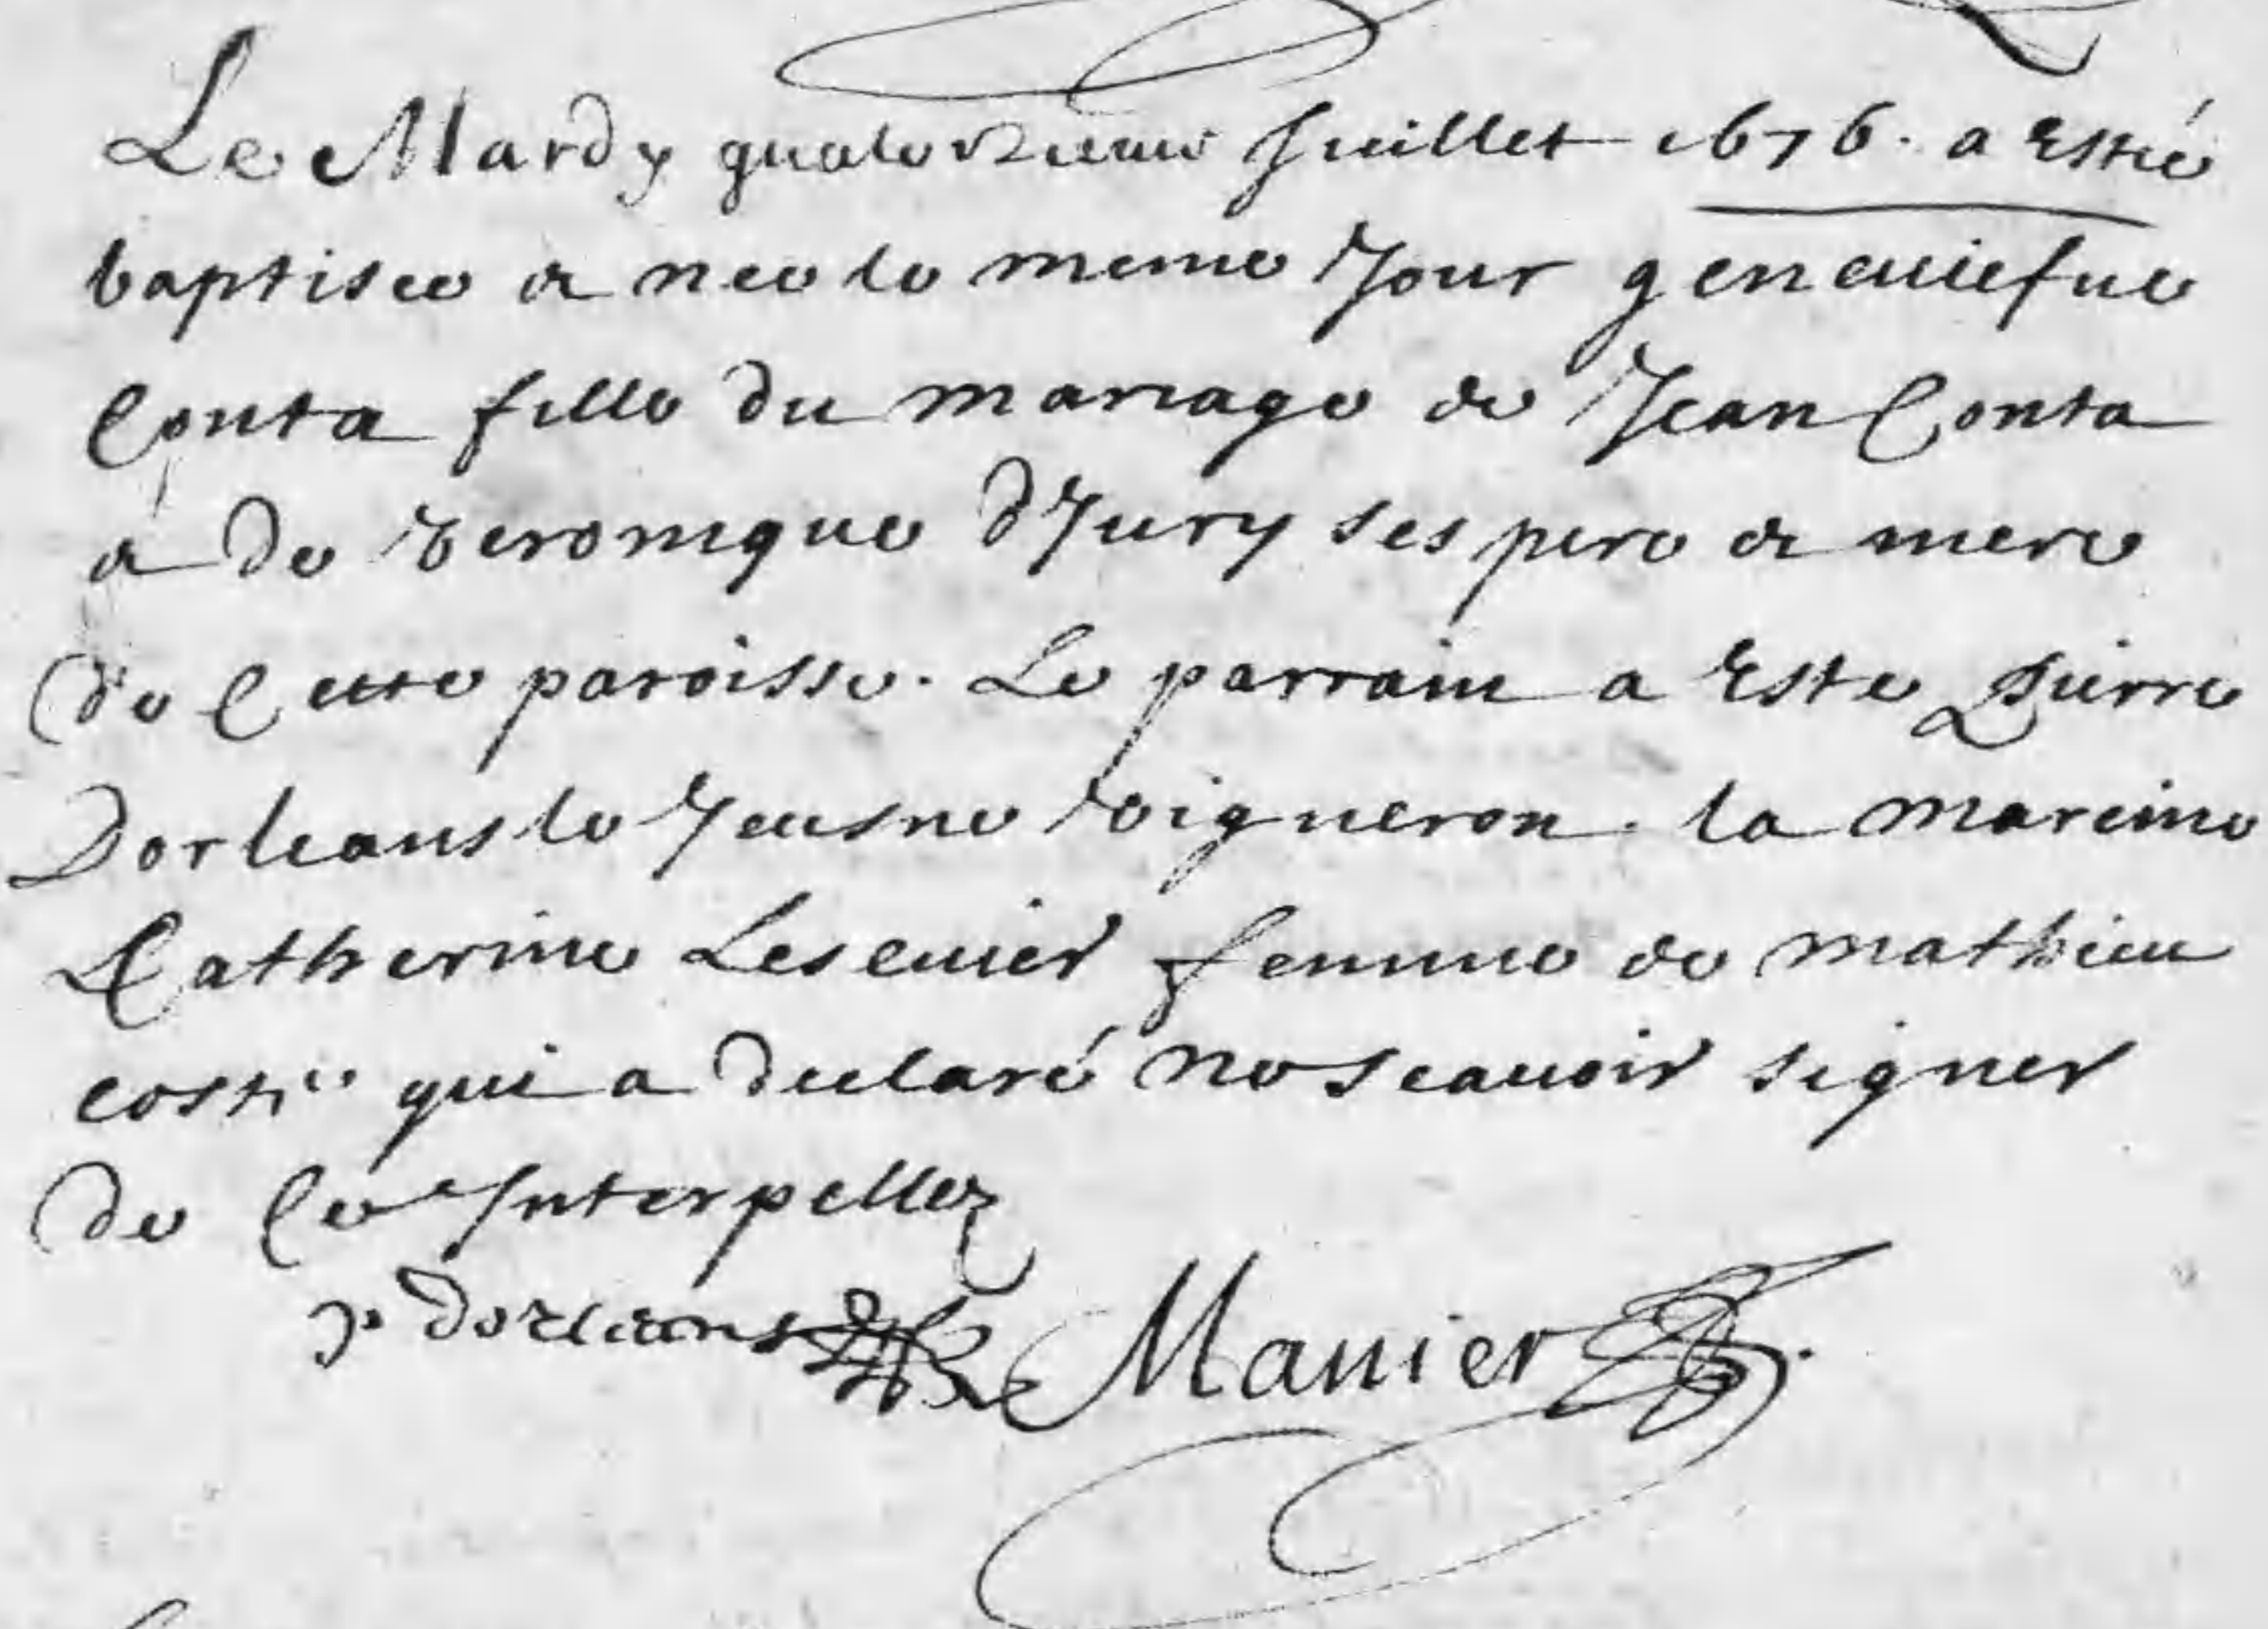 Le Mardy quatorzieme Juillet 1676. a Esté
baptisee & nee le meme Jour geneuiefue
Conta fille du mariage de Jean Conta
& de Veronique d'Jury ses pere & mere
de Cette paroisse. Le parrain a Este Pierre
Dorleans le Jeusne vigneron. la mareine
Catherine Lescuier femme de mathieu
qui a declaré ne scauoir signer
de Ce Interpellez
p dorleans Manier